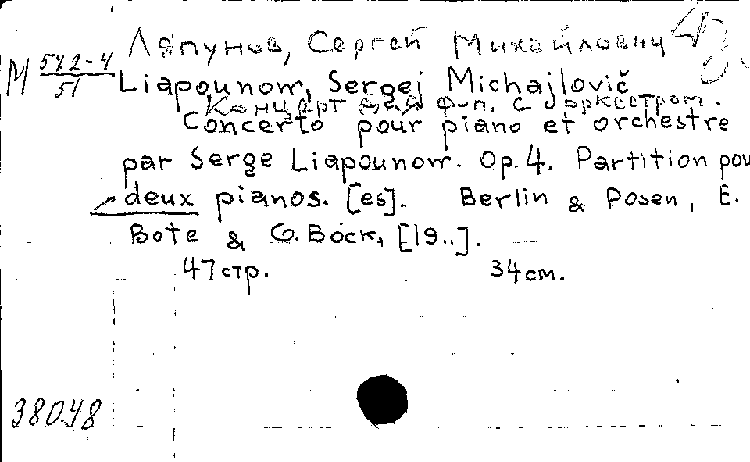 Ляпунов, Сергей Михайлович
М 572-4/51
Liapounow, Sergej Michajlovič
Концерт для фп. с оркестром.
Concerto pour piano et orchestre
par Serge Liapounow. Op. 4. Partition pou
deux pianos. [es]. Berlin & Posen, E.
Bote & G. Bock, [19..].
47 стр. 34 см.
38048